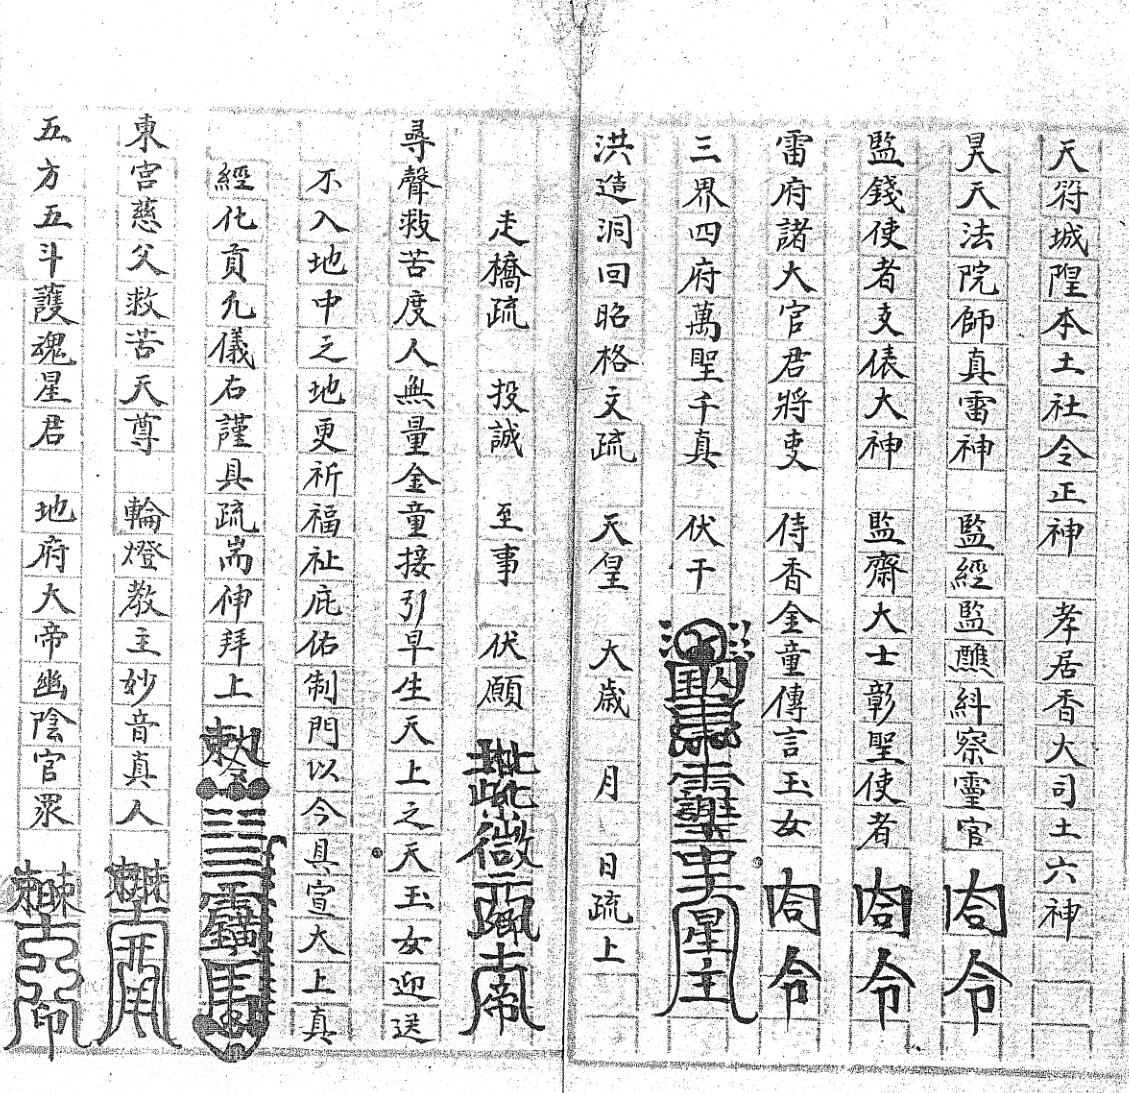 天符城隍本土社令正神 孝居香大司土六神
昊天法院師真雷神 監經監醮糾察靈官
監錢使者支俵大神 監齋大士彰聖使者
雷府諸大官君將吏 侍香金童傳言玉女
三界四府萬聖千真 伏干 星主
洪造洞回昭格文疏 天皇 大歲 月 日疏上
走橋疏 投誠 至事 伏願
尋聲救苦度人無量金童接引早生天上之天玉女迎送
不入地中之地更祈福祉庇佑制門以今具宣大上真
經化貢允儀右謹具疏耑伸拜上
東宮慈父救苦天尊 輪燈教主妙音真人
五方五斗護魂星君 地府大帝幽陰官眾